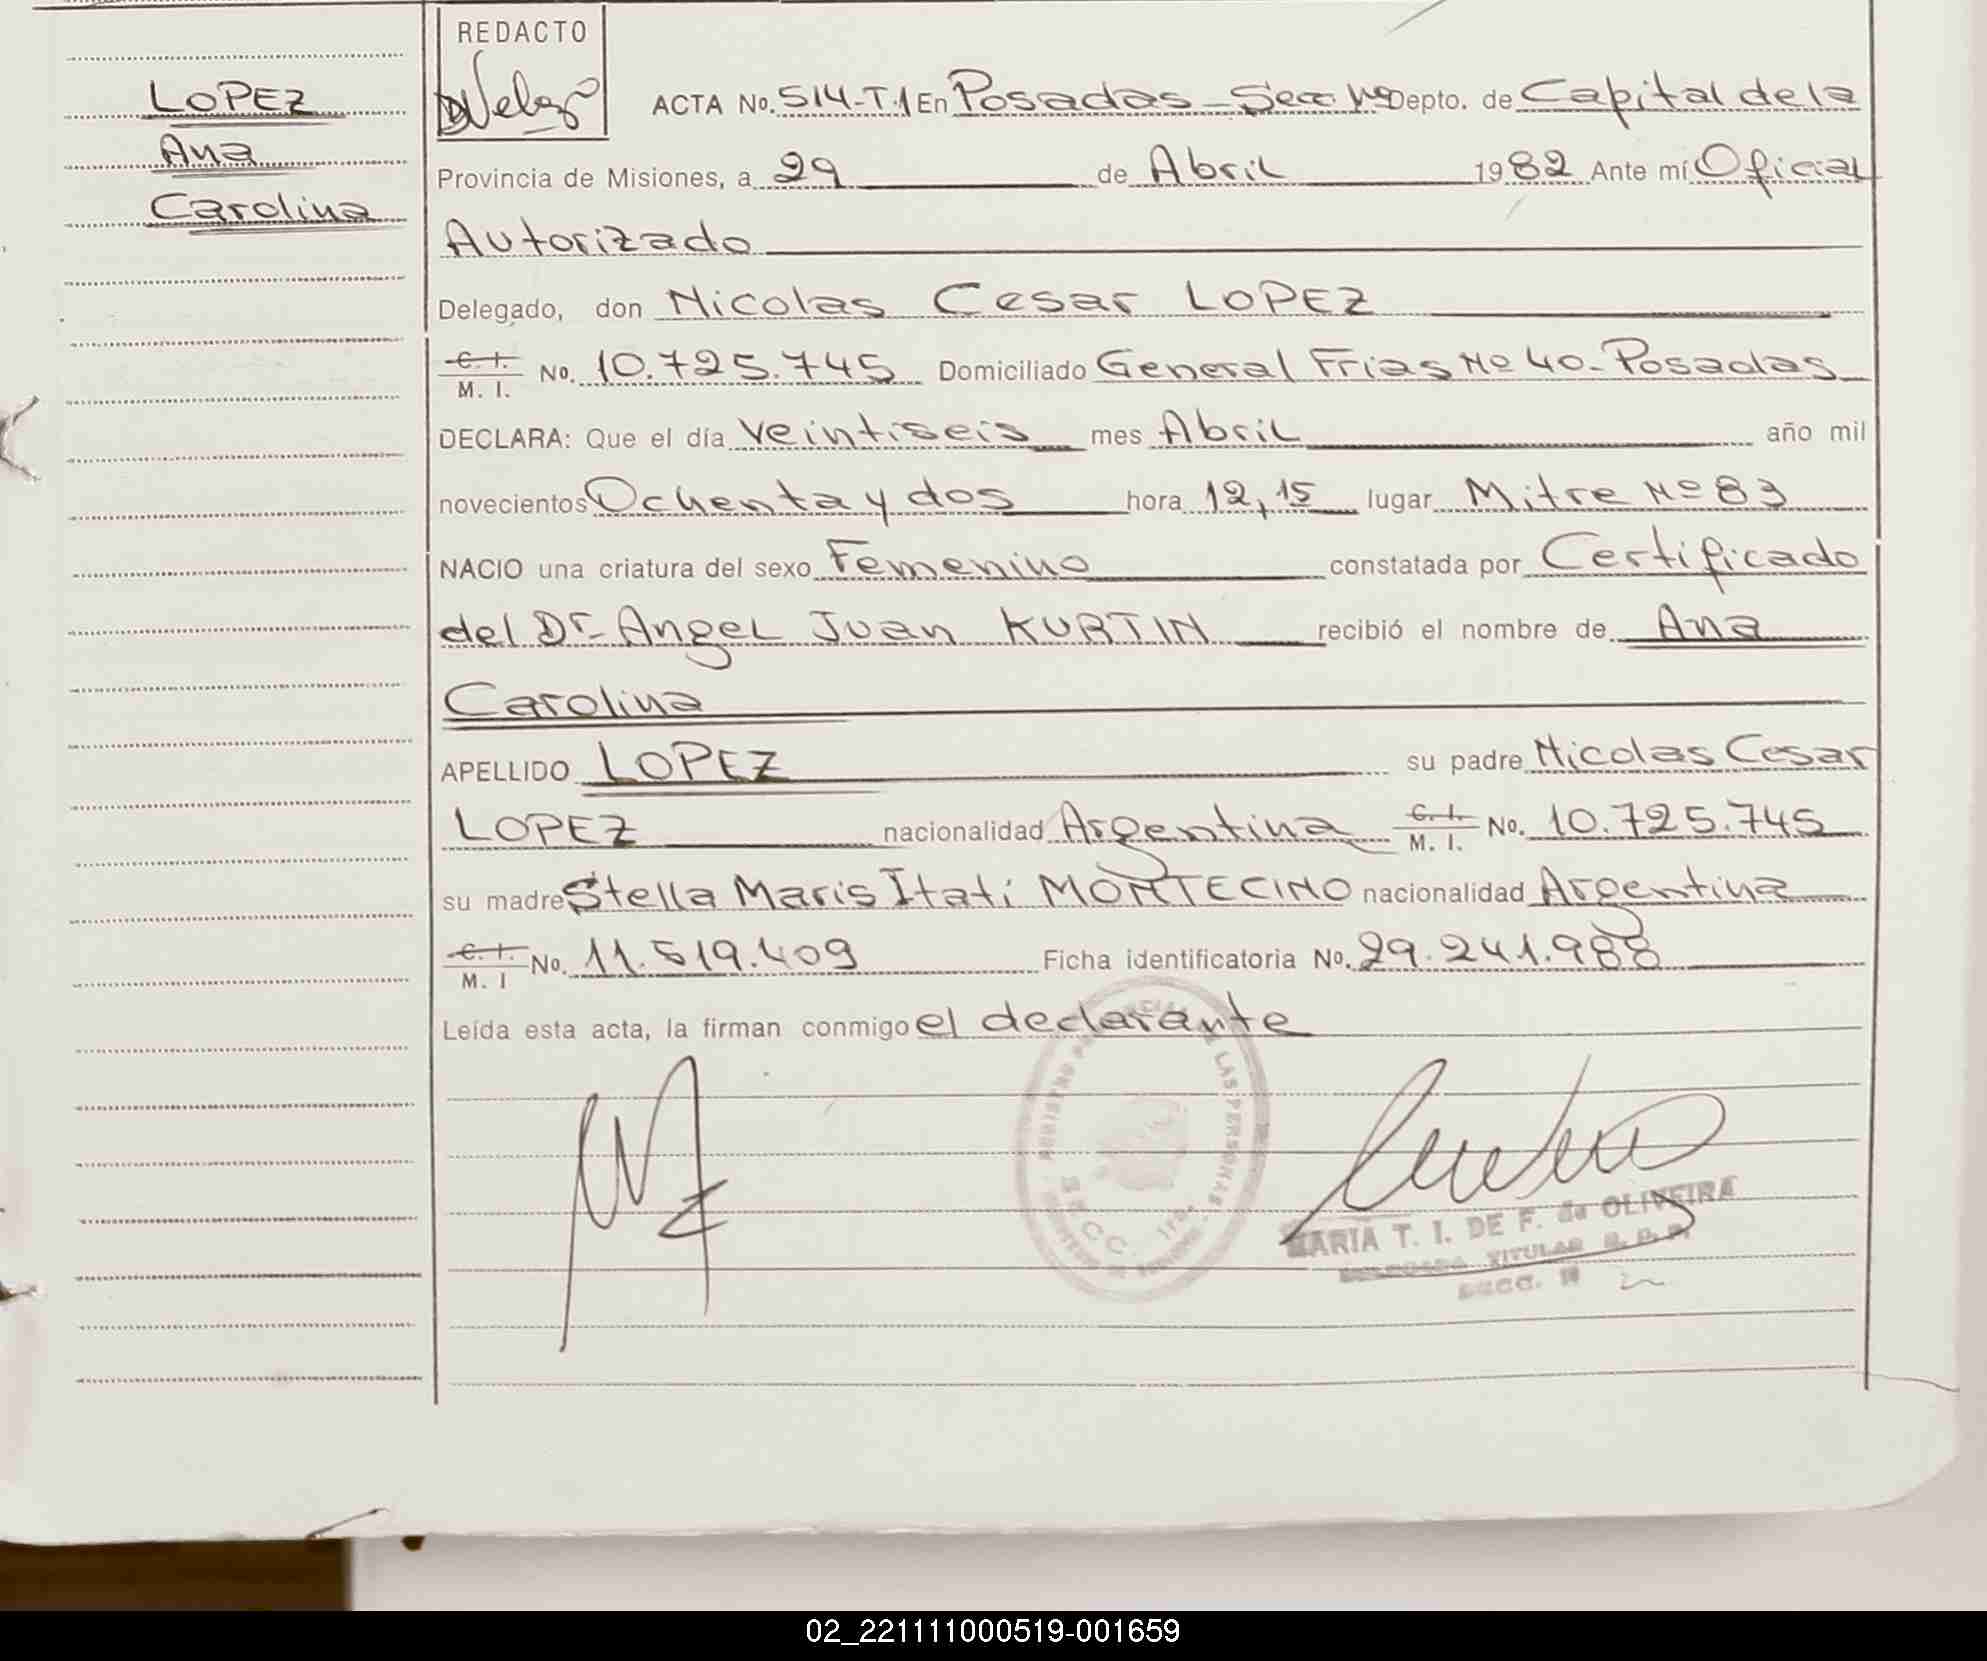 REDACTO
LOPEZ
Ana
Carolina
ACTA No. 514-T.1 En Posadas - Secc Depto. de Capital de la
Provincia de Misiones, a 29 de Abril 1982 Ante mí Oficial
Autorizado
Delegado, don Nicolas Cesar LOPEZ
C. I. / M. I. No. 10.725.745 Domiciliado General Frias Nº 40 - Posadas
DECLARA: Que el día veintiseis mes Abril año mil
novecientos Ochenta y dos hora 12,15 lugar Mitre Nº 83
NACIO una criatura del sexo Femenino constatada por Certificado
del Dr. Angel Juan KURTIN recibió el nombre de Ana
Carolina
APELLIDO LOPEZ su padre Nicolas Cesar
LOPEZ nacionalidad Argentina C. I. / M. I. No. 10.725.745
su madre Stella Maris Itatí MONTECINO nacionalidad Argentina
C. I. / M. I No. 11.519.409 Ficha identificatoria No. 29.241.988
Leída esta acta, la firman conmigo el declarante
LAS PERSONAS
SECC. 1ra.
MARIA T. I. DE F. de OLIVEIRA
TITULAR
SECC.
02_221111000519-001659